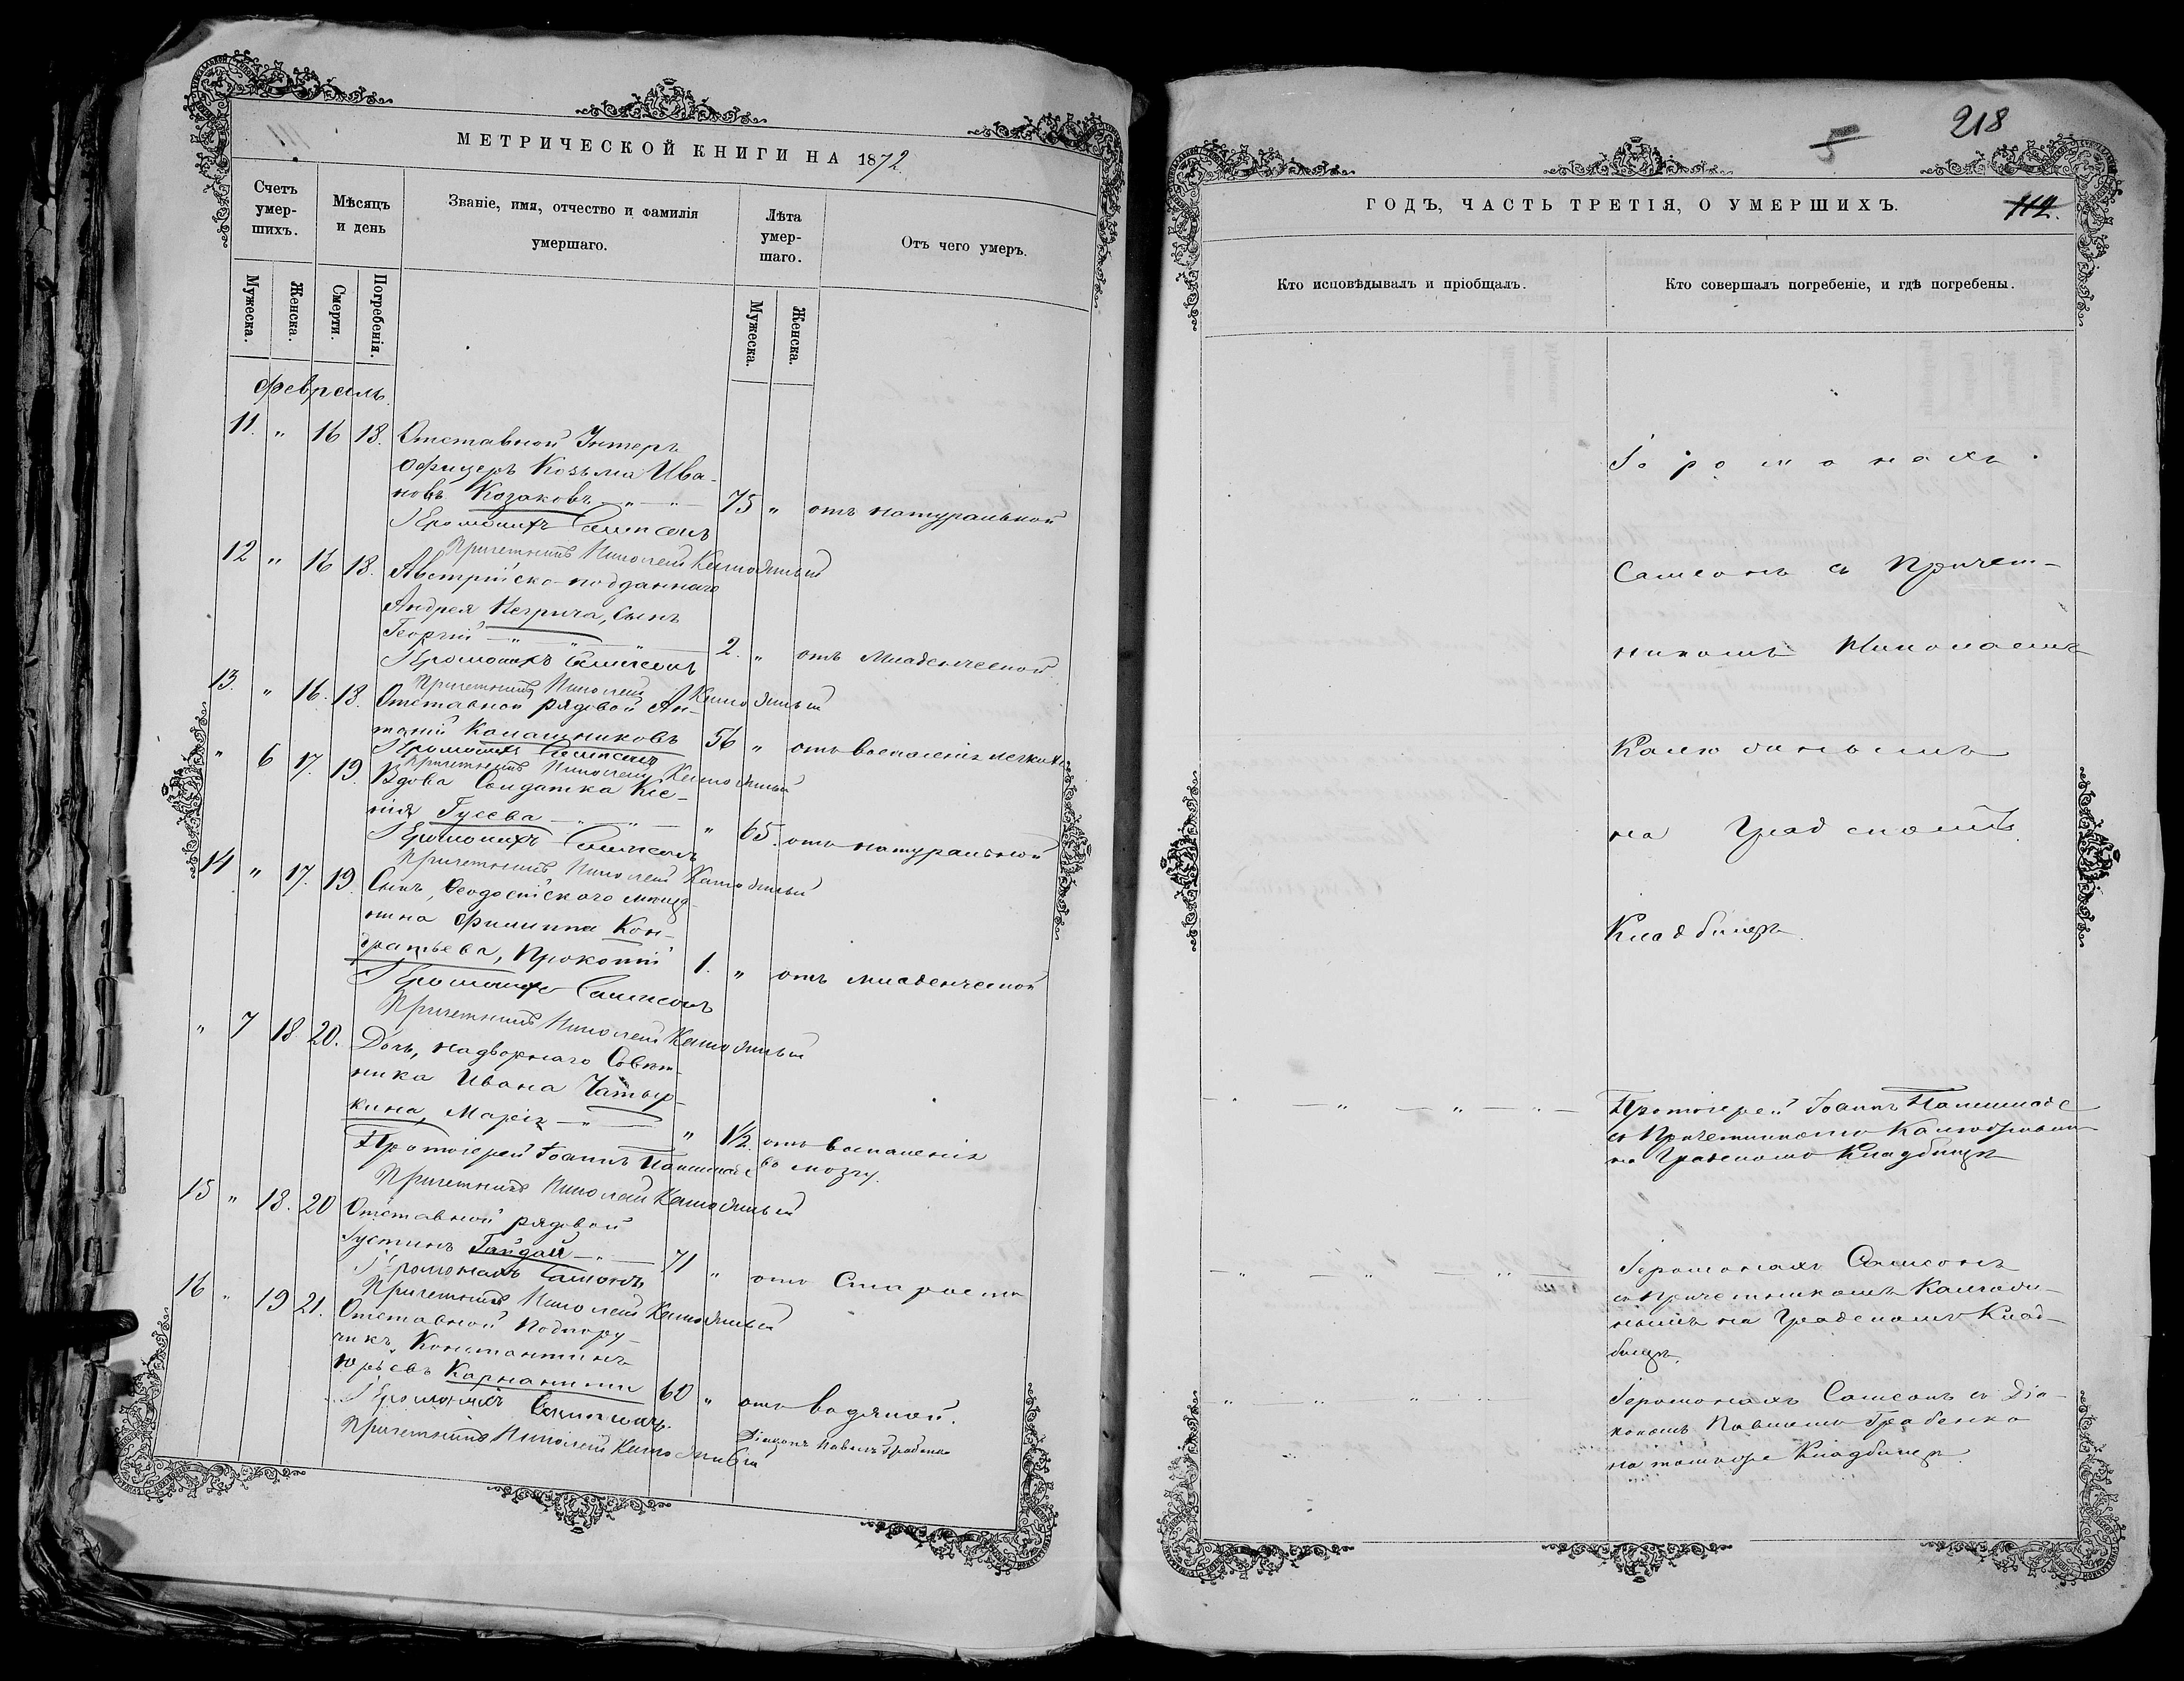 МЕТРИЧЕСКОЙ КНИГИ НА 1872.
Счетъ умер-шихъ.
Мѣсяцъ и день
Званіе, имя, отчество и фамилія умершаго.
Лѣта умер-шаго.
Отъ чего умеръ.
Мужеска.
Женска.
Смерти.
Погребенія.
Мужеска.
Женска.
Февраль.
11. " 16 18. Отставной Унтеръ
офицеръ Козьма Ива-
новъ Козаковъ 75 " отъ натуральной
Іеромонахъ Самсонъ
Причетникъ Николай
12 " 16 18. Австрійско-подданнаго
Андрея Негрича, сынъ
Георгій 2. " отъ младенческой
Іеромонахъ Самсонъ
Причетникъ Николай
13. " 16. 18. Отставной рядовой Ан-
тоній Калашниковъ 56 " отъ воспаленія легкихъ
Іеромонахъ Самсонъ
Причетникъ Николай
" 6 17. 19. Вдова Солдатка Ксе-
нія Гусева " 65. отъ натуральной
Іеромонахъ Самсонъ
Причетникъ Николай
14 " 17. 19. Сынъ, Ѳеодосійскаго мѣща
нина Филиппа Кон-
дратьева, Прокопій 1. " отъ младенческой
Іеромонахъ Самсонъ
Причетникъ Николай
" 7 18 20. Дочь, надворнаго Совѣт-
ника Ивана Чатыр-
кина, Марія " 1½. отъ воспаленія
въ мозгу.
Протоіерей Іоаннъ
Причетникъ Николай
15 " 18. 20 Отставной рядовой
Іустинъ Гайдай 71 " отъ Старости
Іеромонахъ Самсонъ
Причетникъ Николай
16 " 19 21. Отставной Подпору-
чикъ, Константинъ
Юрьевъ 60 " отъ водяной.
Іеромонахъ Самсонъ
Діаконъ Павелъ Грабенко
Причетникъ Николай
218
5
ГОДЪ, ЧАСТЬ ТРЕТІЯ, О УМЕРШИХЪ.
112.
Кто исповѣдывалъ и пріобщалъ.
Кто совершалъ погребеніе, и гдѣ погребены.
Іеромонахъ
Самсонъ съ Причет-
никомъ Николаемъ
на Градскомъ
Кладбищѣ.
Протоіерей Іоаннъ
съ Причетникомъ
на Градскомъ Кладбищѣ
Іеромонахъ Самсонъ
съ Причетникомъ
на Градскомъ Клад-
бищѣ.
Іеромонахъ Самсонъ съ Діа-
кономъ Павломъ Грабенко
на томъ же Кладбищѣ.